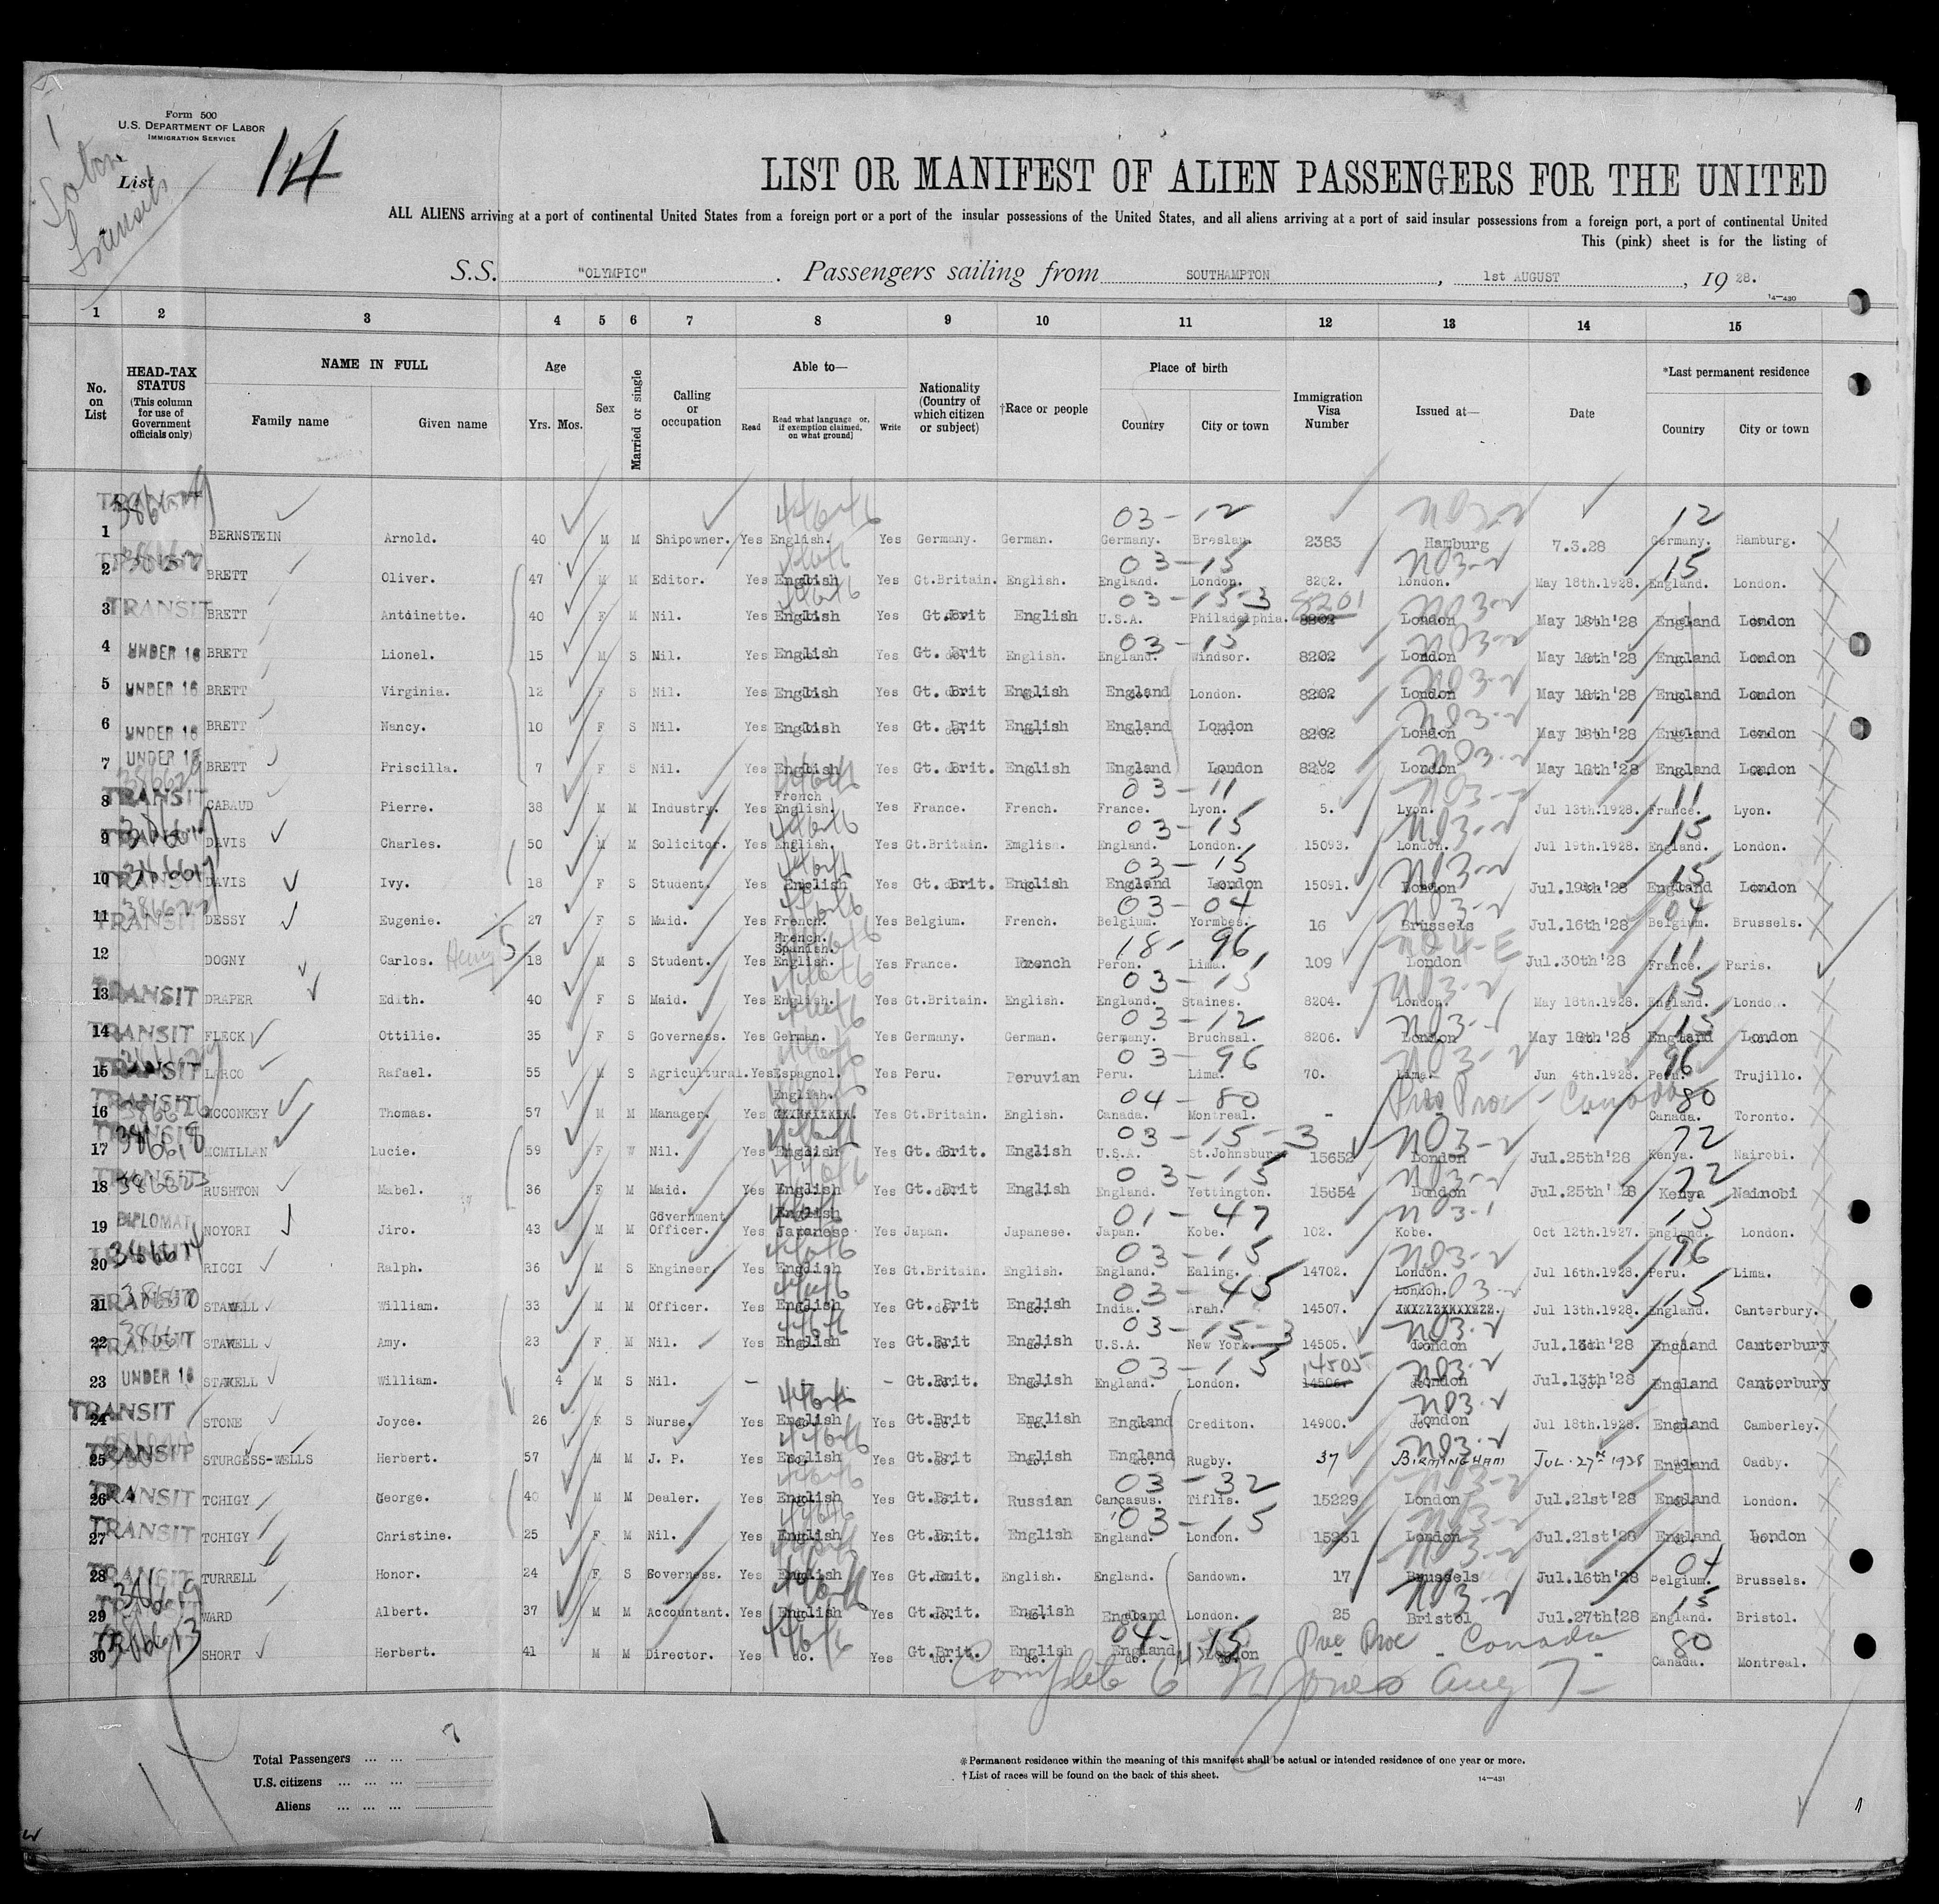 Form 500
U.S. DEPARTMENT OF LABOR
IMMIGRATION SERVICE
List 14
LIST OR MANIFEST OF ALIEN PASSENGERS FOR THE UNITED
ALL ALIENS arriving at a port of continental United States from a foreign port or a port of the insular possessions of the United States, and all aliens arriving at a port of said insular possessions from a foreign port, a port of continental United
This (pink) sheet is for the listing of
S.S. "OLYMPIC". Passengers sailing from SOUTHAMPTON, 1st AUGUST, 1928.
14—430
1 2 3 4 5 6 7 8 9 10 11 12 13 14 15
No. on List
HEAD-TAX STATUS (This column for use of Government officials only)
NAME IN FULL Family name Given name
Age Yrs. Mos.
Sex
Married or single
Calling or occupation
Able to— Read Read what language or, if exemption claimed, on what ground) Write
Nationality (Country of which citizen or subject)
†Race or people
Place of birth Country City or town
Immigration Visa Number
Issued at—
Date
*Last permanent residence Country City or town
1 TRANSIT BERNSTEIN Arnold. 40 M M Shipowner. Yes English. Yes Germany. German. Germany. Breslau. 03-12 2383 Hamburg 7.3.28 12 Germany. Hamburg.
2 TRANSIT BRETT Oliver. 47 M M Editor. Yes English Yes Gt.Britain. English. England. London. 03-15 8202. London. May 18th.1928. 15 England. London.
3 TRANSIT BRETT Antoinette. 40 F M Nil. Yes English Yes Gt.Brit English U.S.A. Philadelphia. 03-15-3 8201 8202 London May 18th'28 England London
4 UNDER 16 BRETT Lionel. 15 M S Nil. Yes English Yes Gt. Brit English. England. Windsor. 03-15 8202 London May 18th'28 England London
5 UNDER 16 BRETT Virginia. 12 F S Nil. Yes English Yes Gt. Brit English England London. 8202 London May 18th'28 England London
6 UNDER 16 BRETT Nancy. 10 F S Nil. Yes English Yes Gt. Brit English England London 8202 London May 18th'28 England London
7 UNDER 16 BRETT Priscilla. 7 F S Nil. Yes English Yes Gt. Brit. English England London 8202 London May 18th'28 England London
8 TRANSIT CABAUD Pierre. 38 M M Industry. Yes French English. Yes France. French. France. Lyon. 03-11 5. Lyon. Jul 13th.1928. 11 France. Lyon.
9 TRANSIT DAVIS Charles. 50 M M Solicitor. Yes English. Yes Gt.Britain. England. London. 03-15 15093. London. Jul 19th.1928. 15 England. London.
10 TRANSIT DAVIS Ivy. 18 F S Student. Yes English Yes Gt. Brit. English England London 03-15 15091. London Jul.19th'28 15 England London
11 TRANSIT DESSY Eugenie. 27 F S Maid. Yes French. Yes Belgium. French. Belgium. Yormbes. 03-04 16 Brussels Jul.16th'28 04 Belgium. Brussels.
12 DOGNY Carlos. Henry 18 M S Student. Yes French. Spanish. English. Yes France. French Peron. Lima. 18-96 109 London Jul.30th'28 11 France. Paris.
13 TRANSIT DRAPER Edith. 40 F S Maid. Yes English. Yes Gt.Britain. English. England. Staines. 03-15 8204. London. May 18th.1928. 15 England. London.
14 TRANSIT FLECK Ottilie. 35 F S Governess. Yes German. Yes Germany. German. Germany. Bruchsal. 03-12 8206. London May 18th'28 15 England London
15 TRANSIT LARCO Rafael. 55 M S Agricultural. Yes Espagnol. Yes Peru. Peruvian Peru. Lima. 03-96 70. Lima. Jun 4th.1928. 96 Peru. Trujillo.
16 TRANSIT MCCONKEY Thomas. 57 M M Manager. Yes English. Yes Gt.Britain. English. Canada. Montreal. 04-80 - Canada 80 Canada. Toronto.
17 TRANSIT MCMILLAN Lucie. 59 F W Nil. Yes English Yes Gt. Brit. English U.S.A. St.Johnsbury 03-15-3 15652 London Jul.25th'28 72 Kenya. Nairobi.
18 TRANSIT RUSHTON Mabel. 36 F M Maid. Yes English Yes Gt. Brit English England. Yettington. 03-15 15654 London Jul.25th'28 72 Kenya Nairobi
19 DIPLOMAT NOYORI Jiro. 43 M M Government Officer. Yes English Japanese Yes Japan. Japanese. Japan. Kobe. 01-47 102. Kobe. Oct 12th.1927. 15 England. London.
20 TRANSIT RICCI Ralph. 36 M S Engineer. Yes English Yes Gt.Britain. English. England. Ealing. 03-15 14702. London. Jul 16th.1928. 96 Peru. Lima.
21 TRANSIT STAWELL William. 33 M M Officer. Yes English Yes Gt. Brit English India. Arah. 03-45 14507. London. Jul 13th.1928. 15 England. Canterbury.
22 TRANSIT STAWELL Amy. 23 F M Nil. Yes English Yes Gt.Brit English U.S.A. New York 03-15-3 14505. London Jul.13th'28 England Canterbury
23 UNDER 16 STAWELL William. 4 M S Nil. - - - Gt.Brit. English England. London. 03-15 14505 14506. London Jul.13th'28 England Canterbury
24 TRANSIT STONE Joyce. 26 F S Nurse. Yes English Yes Gt.Brit English England Crediton. 14900. London Jul 18th.1928. England Camberley.
25 TRANSIT STURGESS-WELLS Herbert. 57 M M J. P. Yes English Yes Gt.Brit English England Rugby. 37 BIRMINGHAM JUL. 27TH 1928 England Oadby.
26 TRANSIT TCHIGY George. 40 M M Dealer. Yes English Yes Gt.Brit. Russian Caucasus. Tiflis. 03-32 15229 London Jul.21st'28 England London.
27 TRANSIT TCHIGY Christine. 25 F M Nil. Yes English Yes Gt.Brit. English England. London. 03-15 15231 London Jul.21st'28 England London
28 TRANSIT TURRELL Honor. 24 F S Governess. Yes English Yes Gt.Brit. English. England. Sandown. 17 Brussels Jul.16th'28 04 Belgium. Brussels.
29 WARD Albert. 37 M M Accountant. Yes English Yes Gt.Brit. English England London. 25 Bristol Jul.27th'28 15 England. Bristol.
30 SHORT Herbert. 41 M M Director. Yes do. Yes Gt.Brit. English England London 04-15 - Canada - 80 Canada. Montreal.
Complete Jones Aug 7
Total Passengers ... ...
U.S. citizens ... ... ...
Aliens ... ... ...
*Permanent residence within the meaning of this manifest shall be actual or intended residence of one year or more.
†List of races will be found on the back of this sheet.
14—431